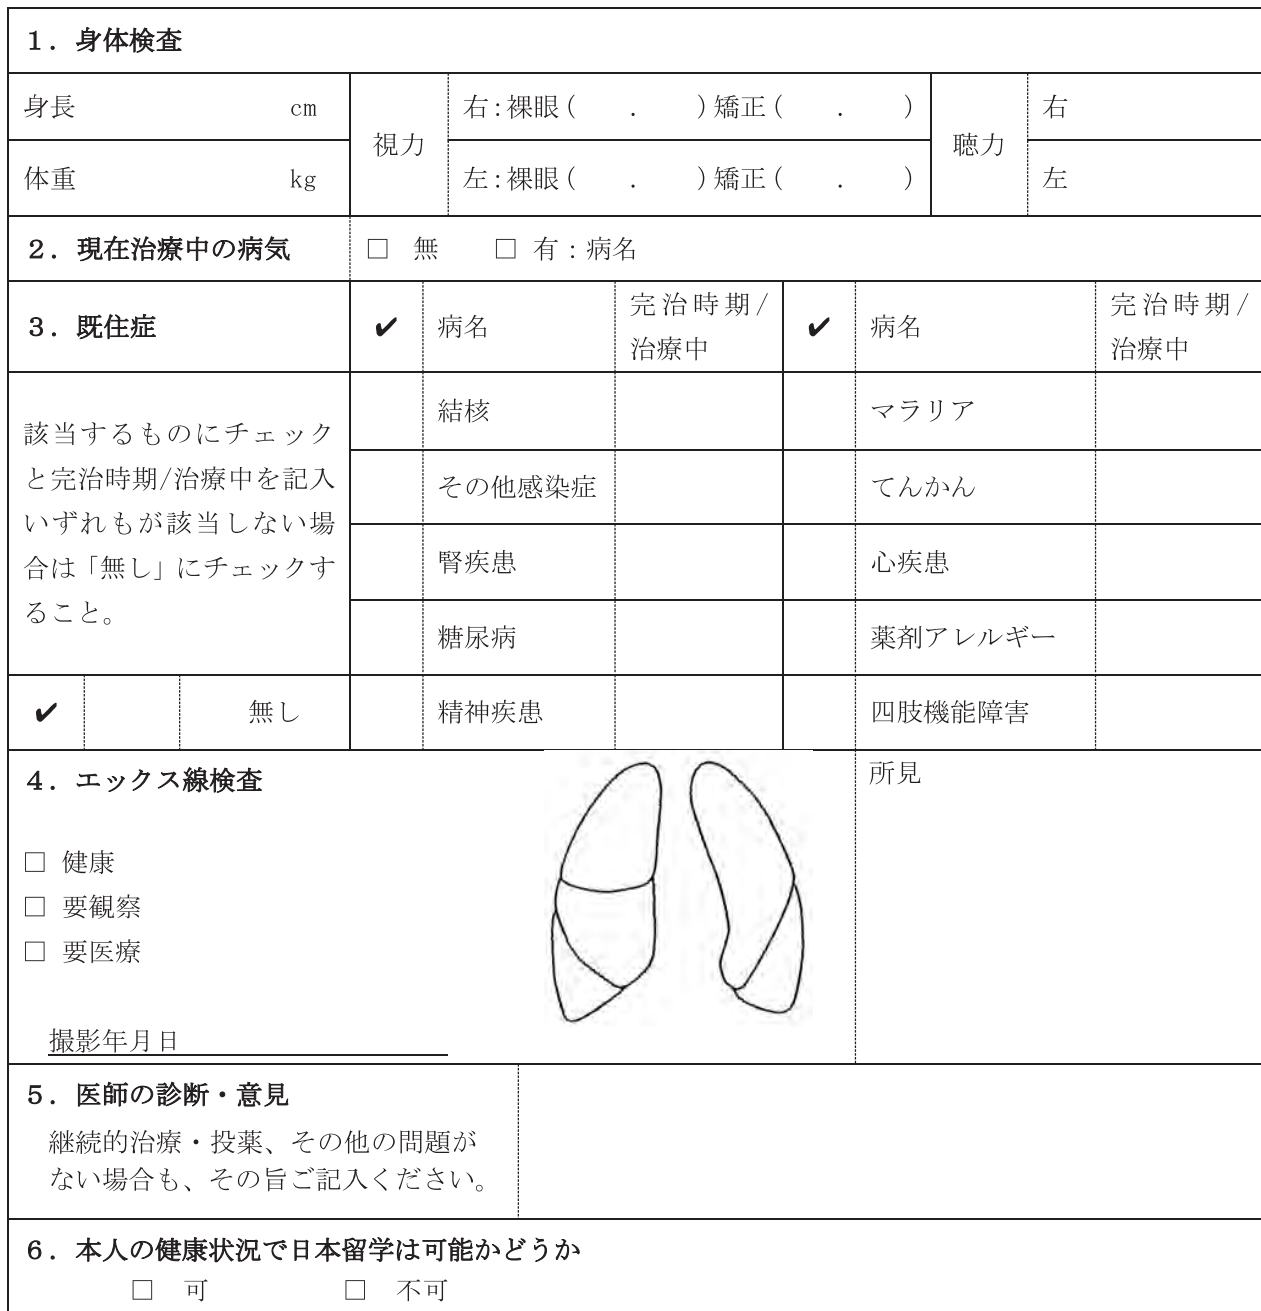 １．身体検査
身長 cm 視力 右:裸眼( . )矯正( . ) 聴力 右
体重 kg 左:裸眼( . )矯正( . ) 左
２．現在治療中の病気 □ 無 □ 有:病名
３．既住症 ✔ 病名 完治時期/治療中 ✔ 病名 完治時期/治療中
該当するものにチェック
と完治時期/治療中を記入
いずれもが該当しない場
合は「無し」にチェックす
ること。
結核 マラリア
その他感染症 てんかん
腎疾患 心疾患
糖尿病 薬剤アレルギー
✔ 無し 精神疾患 四肢機能障害
４．エックス線検査
所見
□ 健康
□ 要観察
□ 要医療
撮影年月日
５．医師の診断・意見
継続的治療・投薬、その他の問題が
ない場合も、その旨ご記入ください。
６．本人の健康状況で日本留学は可能かどうか
□ 可 □ 不可